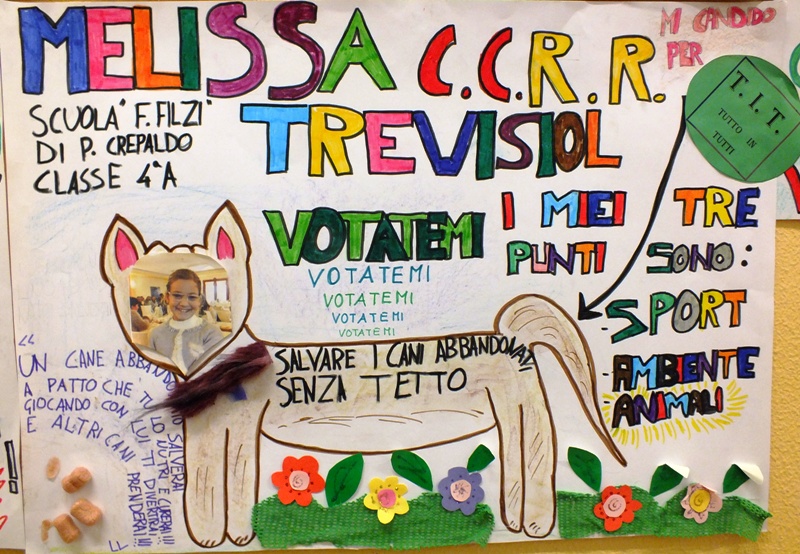 MELISSA C.C.R.R.
TREVISIOL
MI CANDIDO
PER
T.I.T.
TUTTO IN
TUTTI
SCUOLA "F. FILZI"
DI P. CREPALDO
CLASSE 4ªA
VOTATEMI
VOTATEMI
VOTATEMI
VOTATEMI
VOTATEMI
I MIEI TRE
PUNTI SONO:
-SPORT
-AMBIENTE
ANIMALI
SALVARE I CANI ABBANDONATI
SENZA TETTO
"UN CANE ABBANDO
A PATTO CHE TU LO NUTRI E
GIOCANDO CON LUI TI DIVERTIRAI !!!
E ALTRI CANI PRENDERAI !!!
SALVERAI